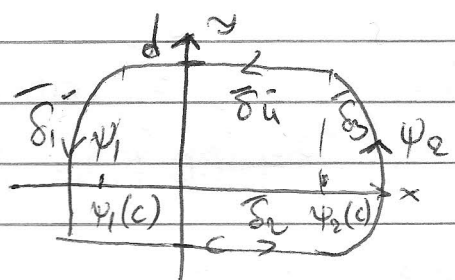 d y
δ̅₁ ψ₁ δ̅₄ δ̅₃ ψ₂
x
ψ₁(c) δ̅₂ ψ₂(c)
c